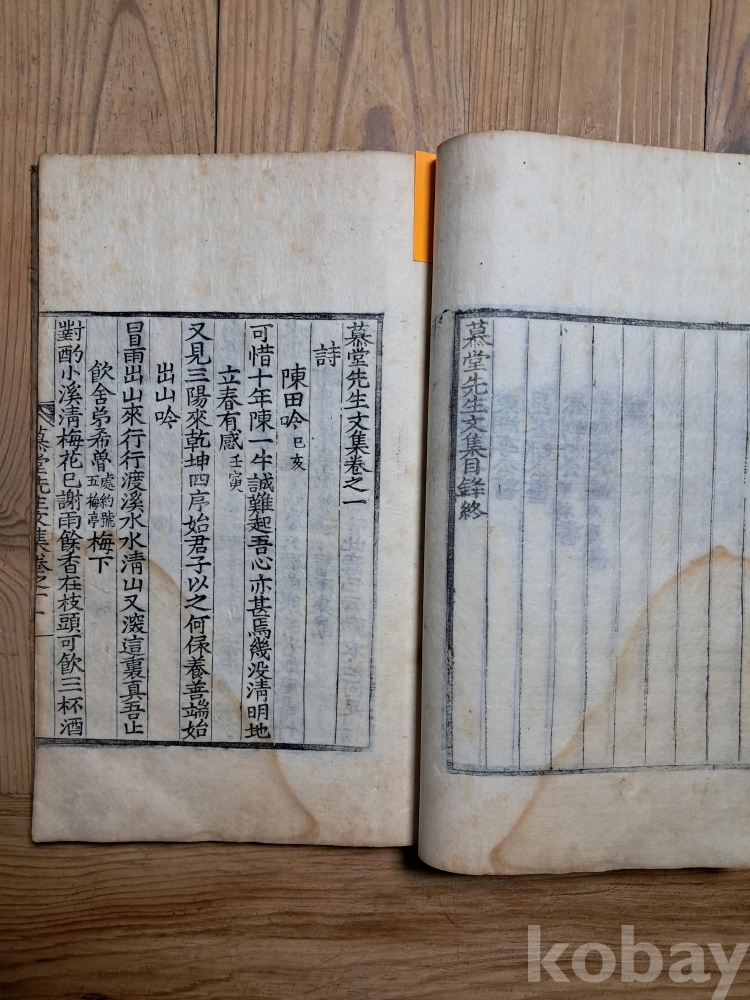 慕堂先生文集目錄終
慕堂先生文集卷之一
詩
陳田吟 己亥
可惜十年陳一牛誠難起吾心亦甚焉幾没清明地
立春有感 壬寅
又見三陽來乾坤四序始君子以之何保養善端始
出山吟
冒雨出山來行行渡溪水水清山又深這裏真吾止
飲舍弟希魯 處約號五梅亭 梅下
對酌小溪清梅花已謝雨餘香在枝頭可飲三杯酒
慕堂先生文集卷之一 一
kobay